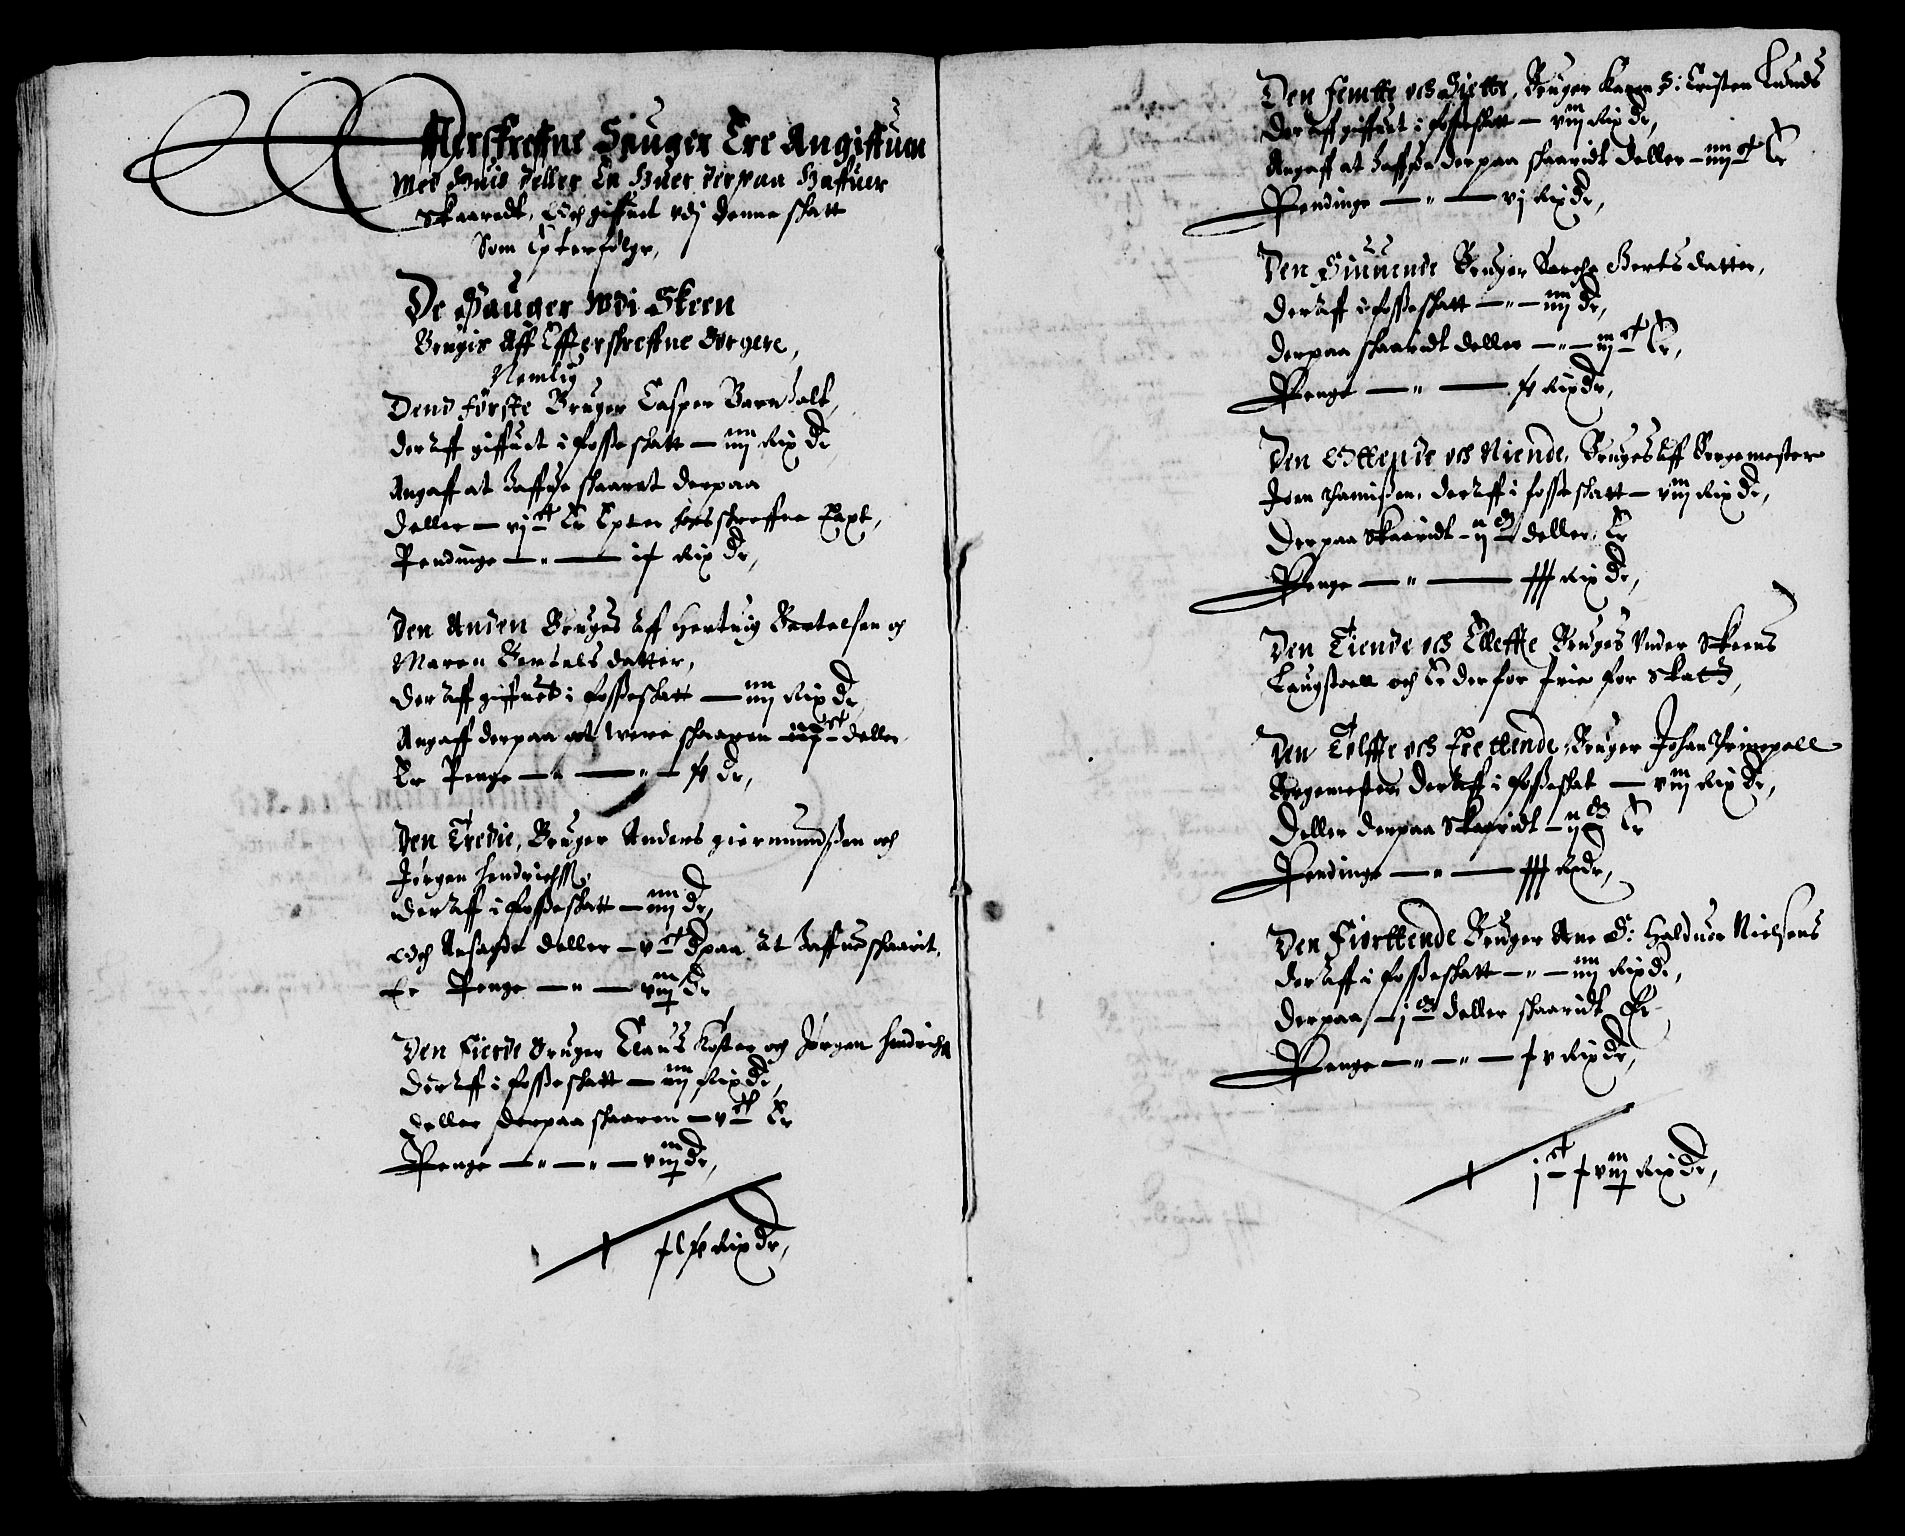 Efftterskreffne Sauger Ere Angiffuen
Med huis deller En huer derpaa haffuer
Skaaredt, Och giffuet vdj denne skatt
Som Epterfølger,
De Sauger wdi Skeen
Brugis Aff Efftterskreffne Borgere,
Nemlig
Dend Første Bruger Casper Barnholt,
deraff giffuet i fosseskatt — iiij Rix Dr
Angaff at haffue skaaret derpaa
deller — vj ct Er Epter forskreffne Taxt,
Pendinge — " — ix Rix Dr,
Den Anden Bruges Aff Hertuig Bertelsen og
Maren Bertelsdatter,
deraff giffuet i fosseskatt — iiij Rix Dr
Angaff derpaa at were skaaren — ct deller
Er Penge — " — " — Dr,
Den Tredie, Bruger Anders giermundssen och
Jørgen Hendrichss.
deraff i fosseskatt — iiij Dr,
Och Ansagde deller — v ct derpaa at haffue skaarit.
Er Penge — " — viij Dr
Den Fierde Bruger Claus Koster og Jørgen Hendrichs
deraff i fosseskatt — iiij Rix Dr,
deller derpaa skaaren — v ct Er
Penge — " — " — viij Dr,
Rix Dr,
Den femtte och Siette, Bruger Karen S: Cristen Lunds
deraff giffuet i fosseskatt — viij Rix Dr,
Angaff at haffue derpaa skaaridt deller — iiij ct Er
Pendinge — " — vj Rix Dr,
Den Siuuende Bruger Bertsdatter,
deraff i fosseskatt — " — iiij Dr,
derpaa skaaridt deller — " — iij ct Er,
Penge — " — Rix Dr,
Den Ottende och Niende, Bruges Aff Borgemester
Jren deraff i fosseskatt — viij Rix Dr,
Derpaa Skaaridt — ij deller, Er
Penge — " — xxx Rix Dr,
Den Tiende och Elleffte Bruges Vnder Skeens
Laugstoell och Er derfor frie for Skatt,
Den Tolffte och Trettende, Bruger Johan Prinspall
Borgemester, deraff i fosseskat — viij Rix Dr,
Deller derpaa Skaaridt — ij Er
Pendinge — " — xxx Rdr,
Den Fiorttende Bruger Ane S: Halduor Nielsens
deraff i fosseskatt — " — iiij Rix Dr,
derpaa — j deller skaaridt Er
Penge — " — " — xv Rix Dr,
j ct x viij Rix Dr,